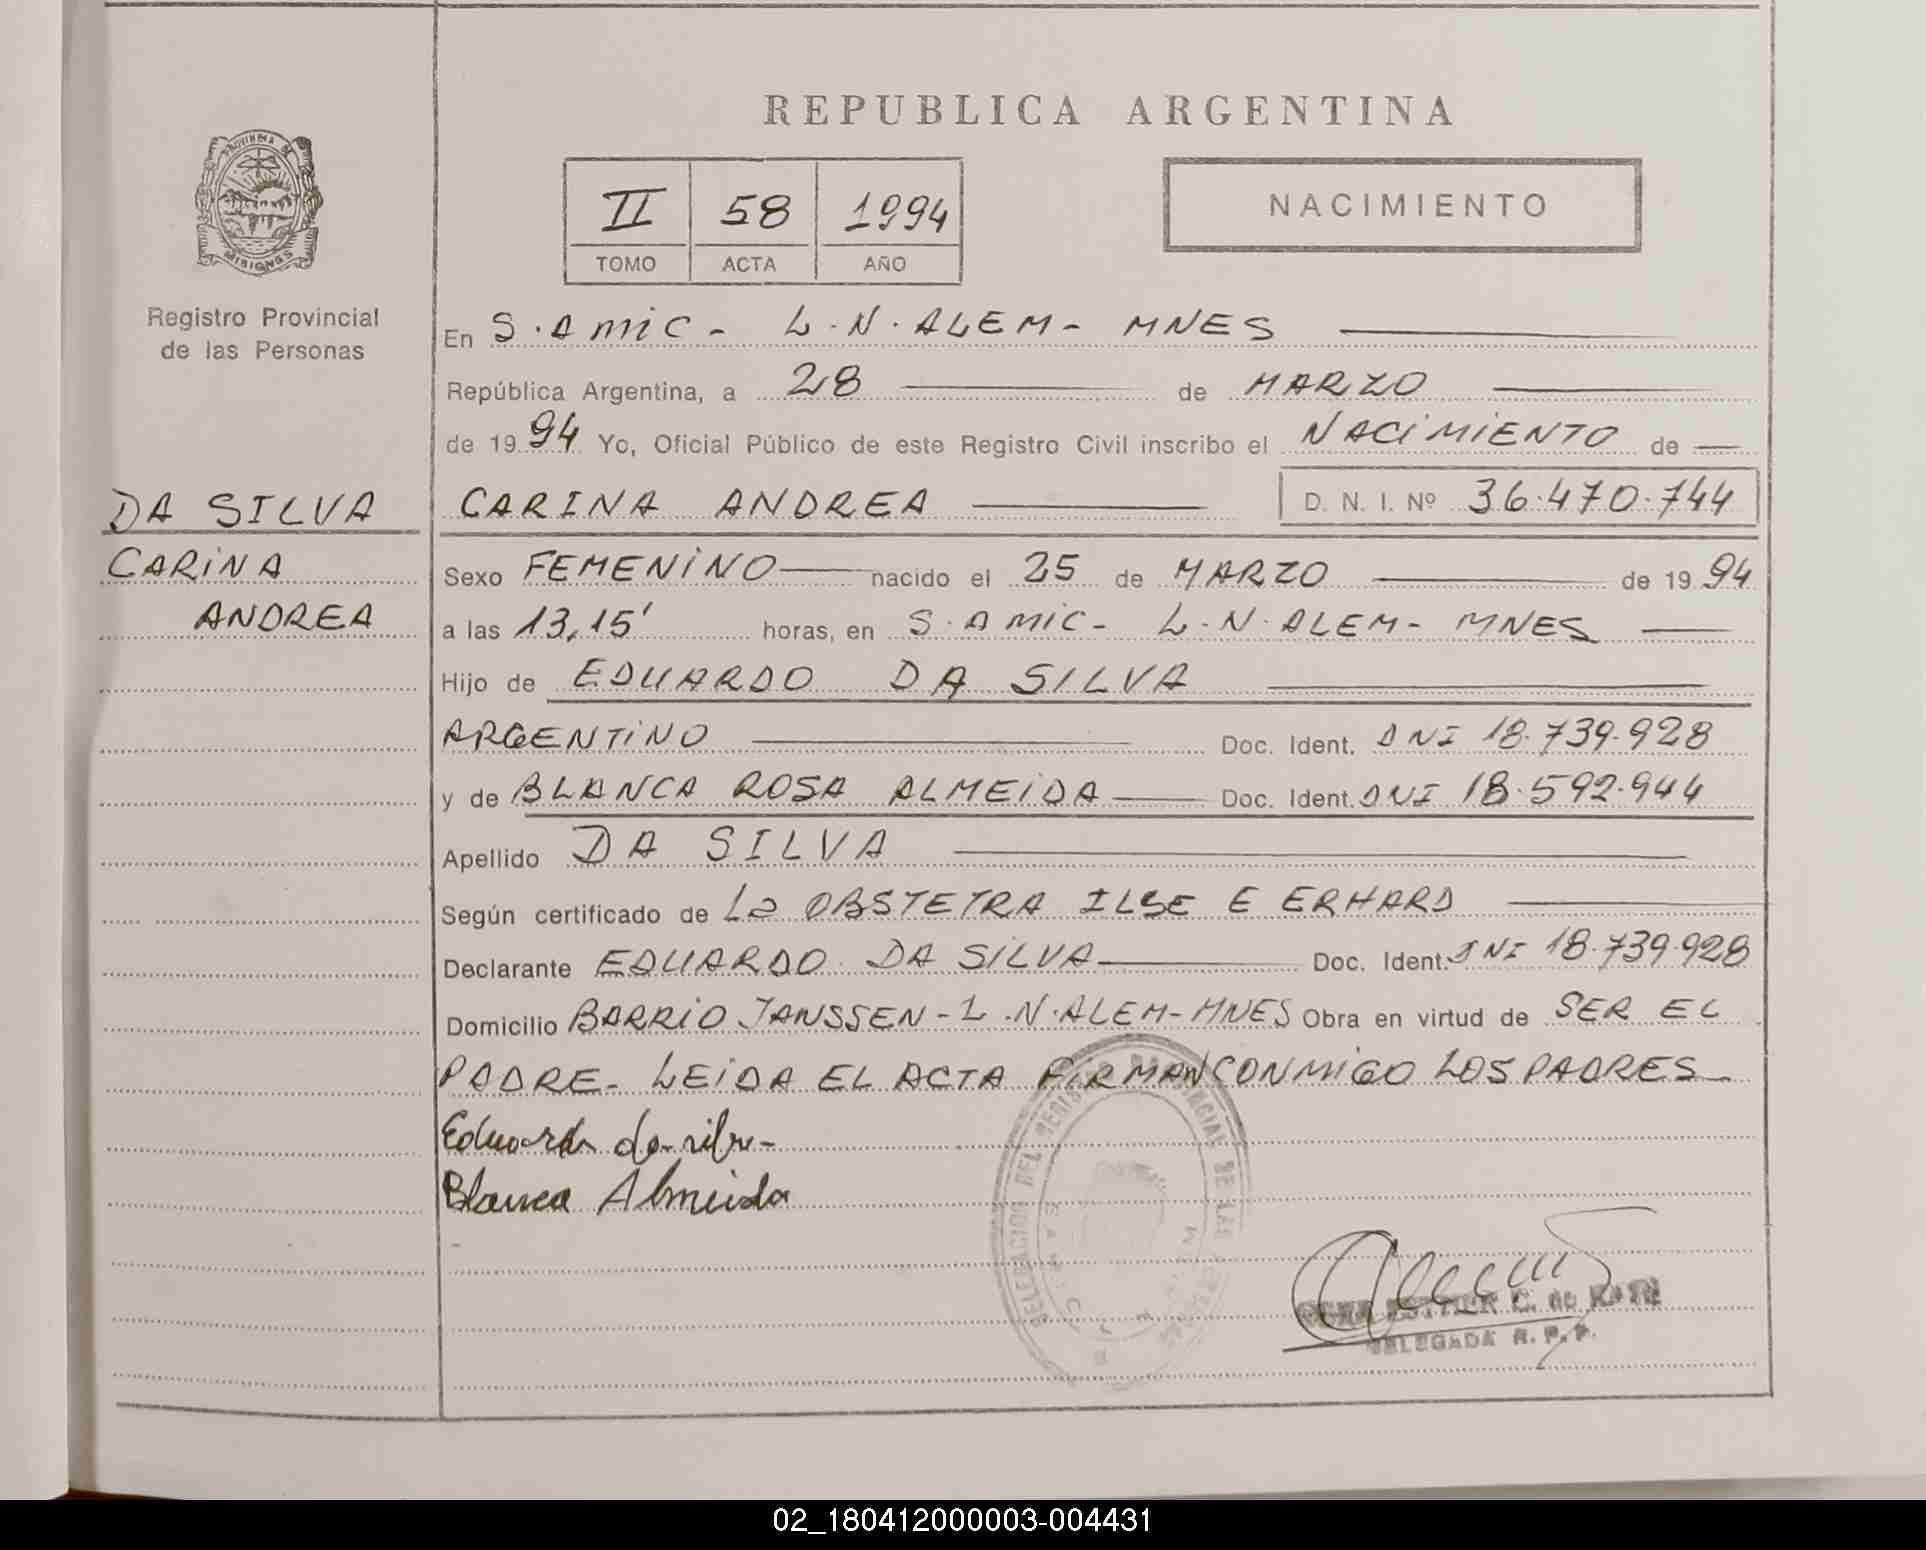 REPUBLICA ARGENTINA
PROVINCIA DE
MISIONES
Registro Provincial
de las Personas
II 58 1994
TOMO ACTA AÑO
NACIMIENTO
En S. AMIC - L.N. ALEM - MNES
República Argentina, a 28 de MARZO
de 1994 Yo, Oficial Público de este Registro Civil inscribo el NACIMIENTO de
DA SILVA
CARINA
ANDREA
CARINA ANDREA D. N. I. Nº 36.470.744
Sexo FEMENINO nacido el 25 de MARZO de 1994
a las 13,15' horas, en S. AMIC - L.N. ALEM - MNES
Hijo de EDUARDO DA SILVA
ARGENTINO Doc. Ident. DNI 18.739.928
y de BLANCA ROSA ALMEIDA Doc. Ident. DNI 18.592.944
Apellido DA SILVA
Según certificado de La OBSTETRA ILSE E ERHARD
Declarante EDUARDO DA SILVA Doc. Ident. DNI 18.739.928
Domicilio BARRIO JANSSEN - L.N. ALEM - MNES Obra en virtud de SER EL
PADRE - LEIDA EL ACTA FIRMAN CONMIGO LOS PADRES
Eduardo da silva -
Blanca Almeida
DELEGACION DEL REGISTRO PROVINCIAL DE LAS
ESTHER C. de
DELEGADA R. P. P.
02_180412000003-004431